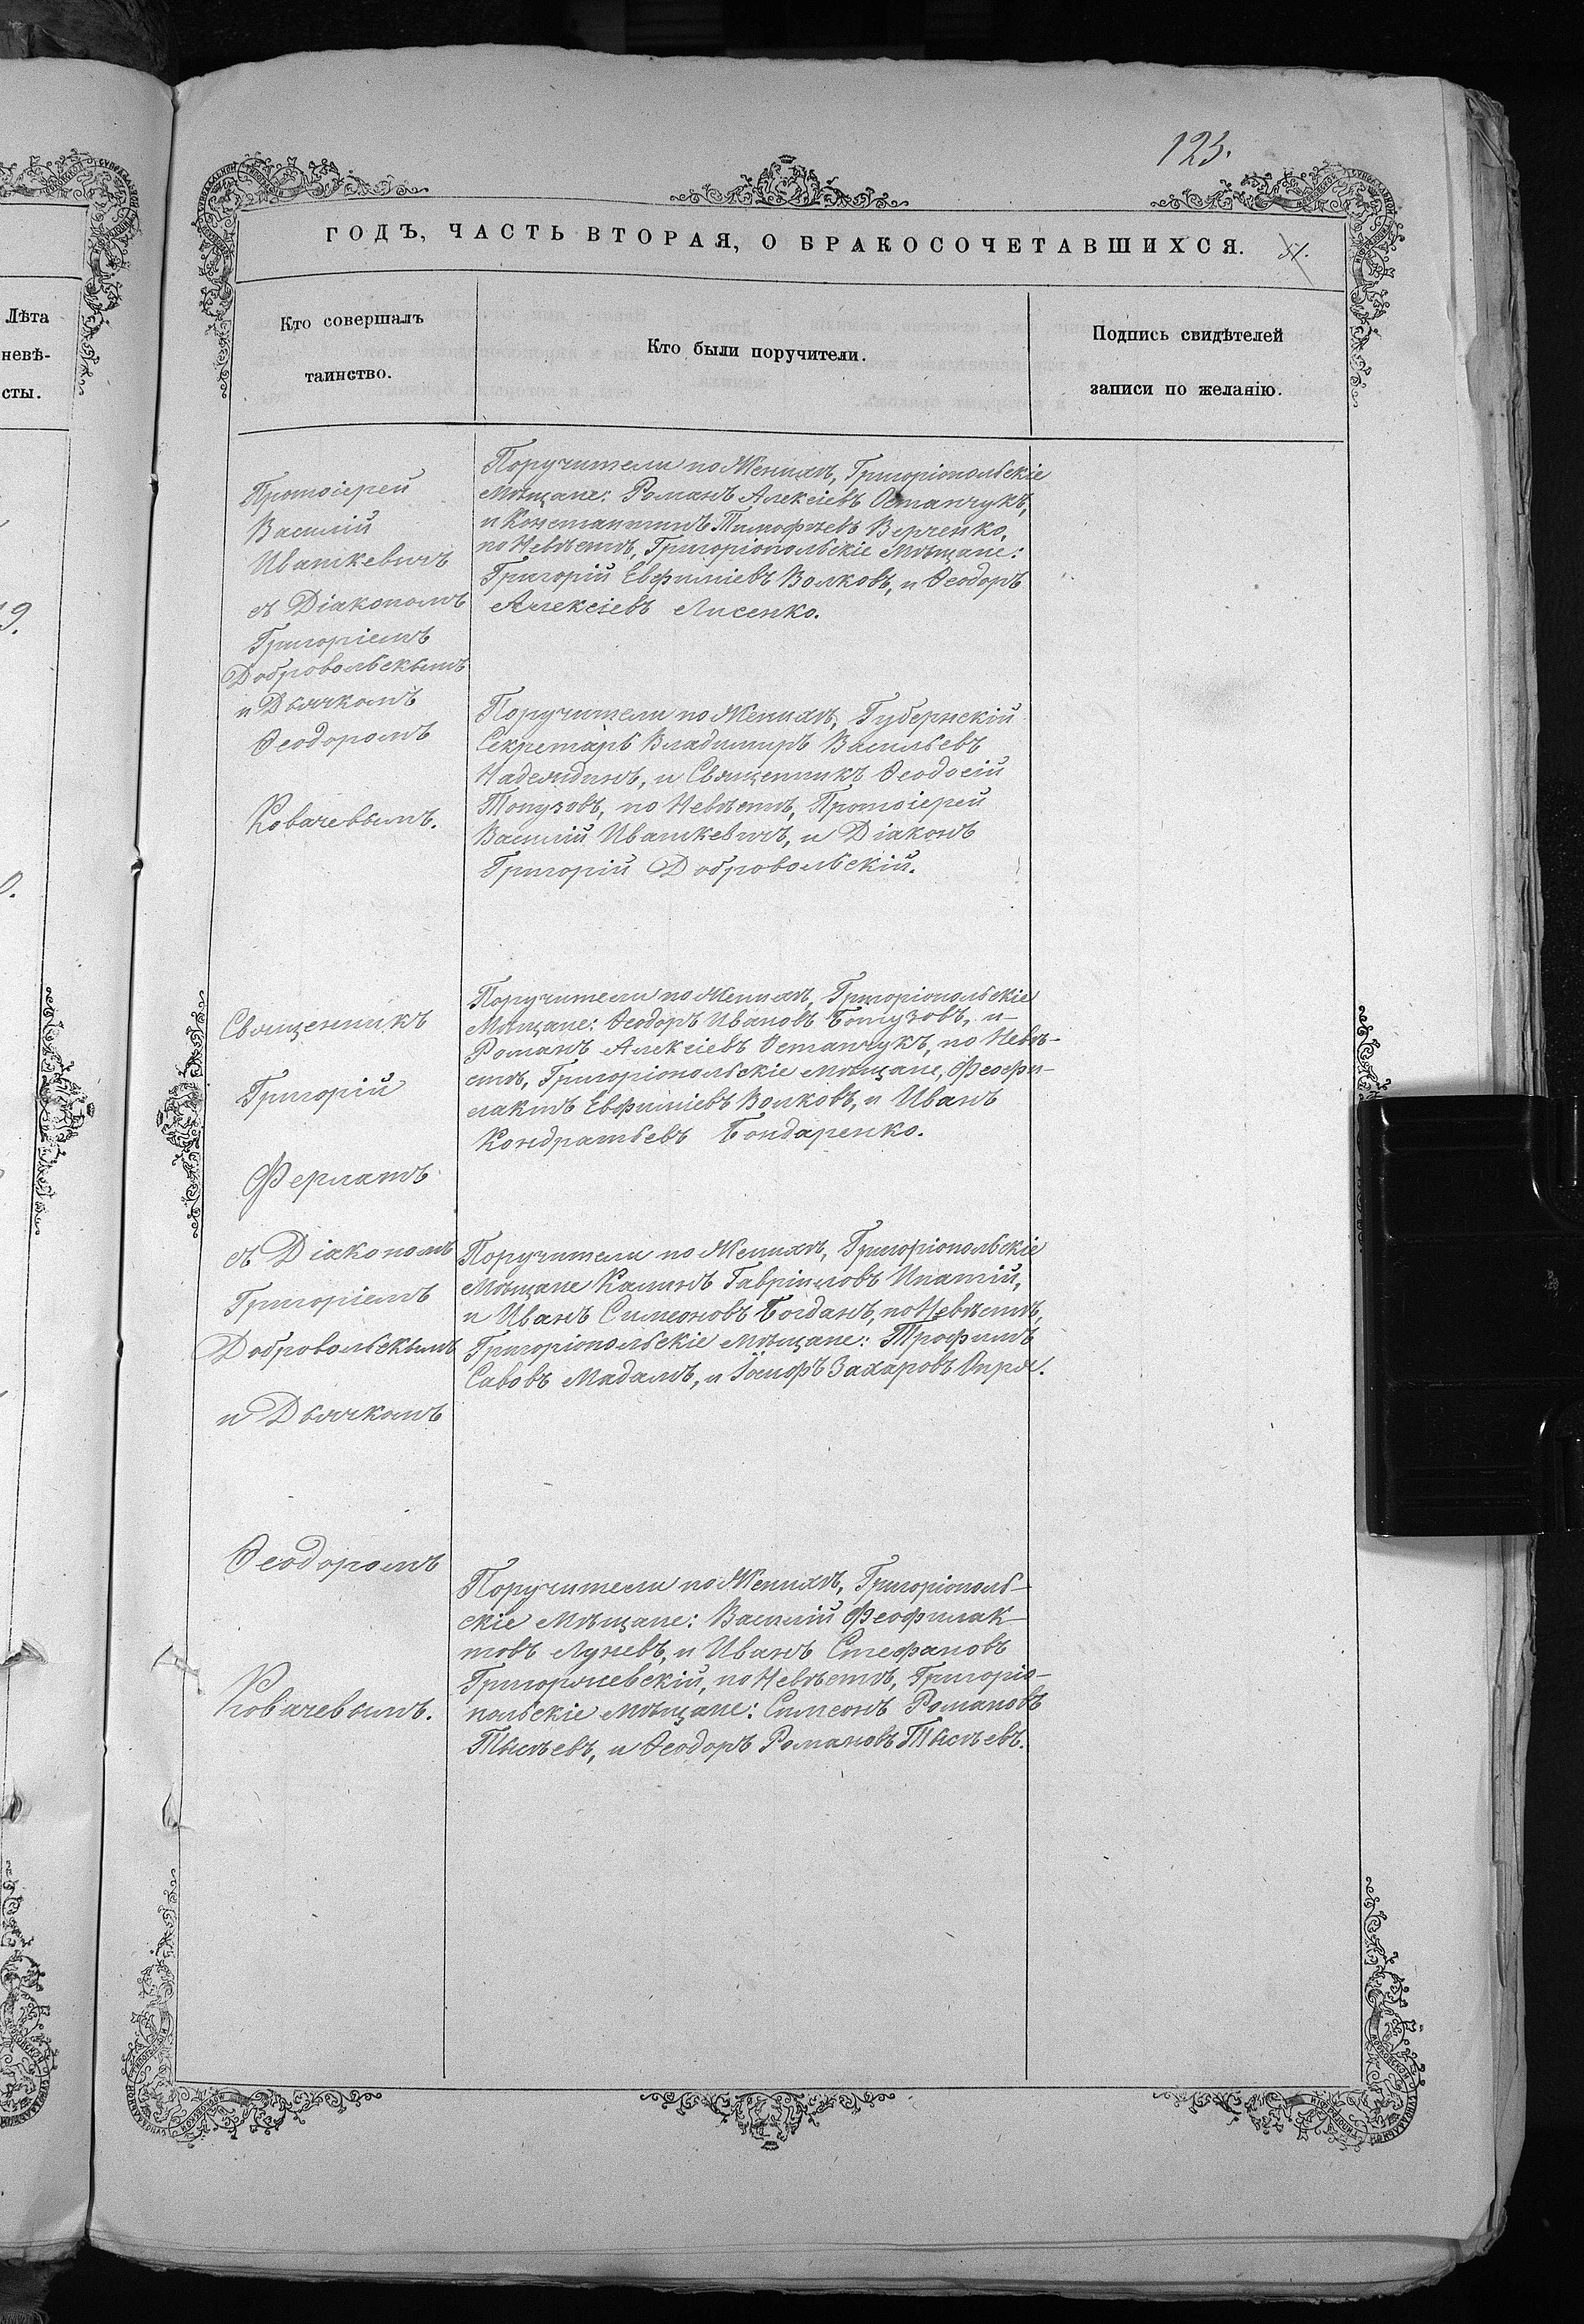 123.
ГОДЪ, ЧАСТЬ ВТОРАЯ, О БРАКОСОЧЕТАВШИХСЯ.
Лѣта
невѣ-
сты.
Кто совершалъ
таинство.
Кто были поручители.
Подпись свидѣтелей
записи по желанію.
Протоіерей
Василій
Ивашкевичъ
съ Діакономъ
Григоріемъ
Добровольскымъ
и Дьячкомъ
Ѳеодоромъ
Ковачевымъ.
Поручители по Женихѣ, Григоріопольскіе
Мѣщане: Романъ Алексіевъ Остапчукъ,
и Константинъ Тимофѣевъ Верченко,
по Невѣстѣ, Григоріопольскіе Мѣщане:
Григорій Евфиміевъ Волковъ, и Ѳеодоръ
Алексіевъ Лисенко.
Поручители по Женихѣ, Губернскій
Секретарь Владимиръ Васильевъ
Надеждинъ, и Священникъ Ѳеодосій
Топузовъ, по Невѣстѣ, Протоіерей
Василій Ивашкевичъ, и Діаконъ
Григорій Добровольскій.
Священникъ
Григорій
Ферлатъ
съ Діакономъ
Григоріемъ
Добровольскымъ
и Дьячкомъ
Ѳеодоромъ
Ковачевымъ.
Поручители по Женихѣ, Григоріопольскіе
Мѣщане: Ѳеодоръ Ивановъ Ботузовъ, и
Романъ Алексіевъ Остапчукъ, по Невѣ-
стѣ, Григоріопольскіе мѣщане, Феофи-
лактъ Евфиміевъ Волковъ, и Иванъ
Кондратьевъ Бондаренко.
Поручители по Женихѣ, Григоріопольскіе
Мѣщане Калинъ Гавріиловъ Ипатій,
и Иванъ Симеоновъ Богданъ, по Невѣстѣ,
Григоріопольскіе мѣщане: Трофимъ
Савовъ Мадамъ, и Іосифъ Захаровъ Опря.
Поручители по Женихѣ, Григоріополь-
скіе Мѣщане: Василій Феофилак-
товъ Луневъ, и Иванъ Стефановъ
Григоржевскій, по Невѣстѣ, Григоріо-
польскіе мѣщане: Симеонъ Романовъ
и Ѳеодоръ Романовъ